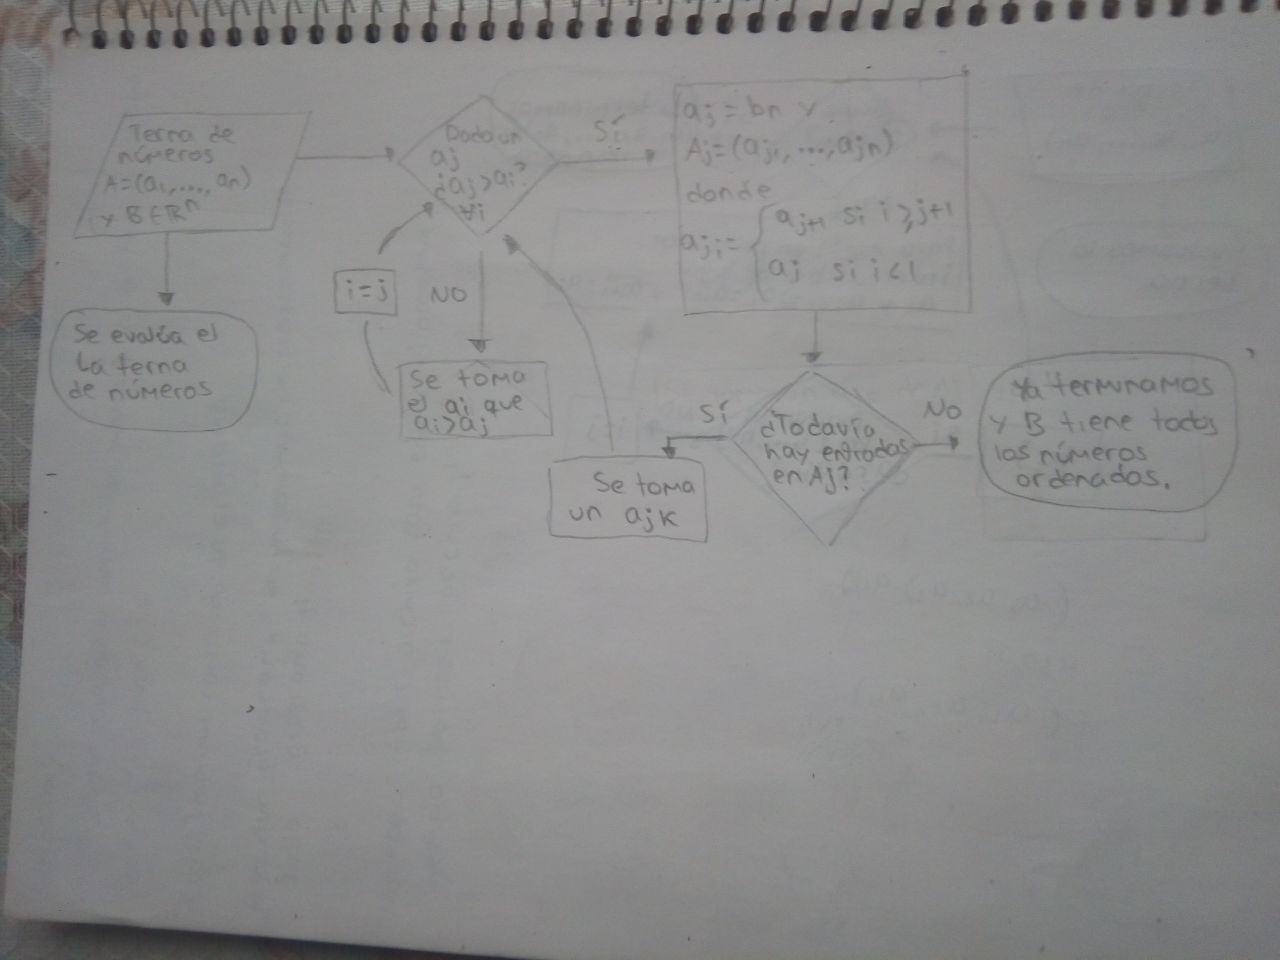 Terna de
números
A=(a₁,...,an)
y B∈ℝⁿ
Se evalúa el
La terna
de números
Dado un
aj
¿aj>ai?
∀i
Sí
NO
i=j
Se toma
el ai que
ai>aj
aj=bn y
Aj=(aj₁,...,ajn)
donde
aji={aj+1 si i≥j+1
aj si i<1
¿Todavía
hay entradas
en Aj?
Sí
NO
Se toma
un ajk
Ya terminamos
y B tiene todos
los números
ordenados.